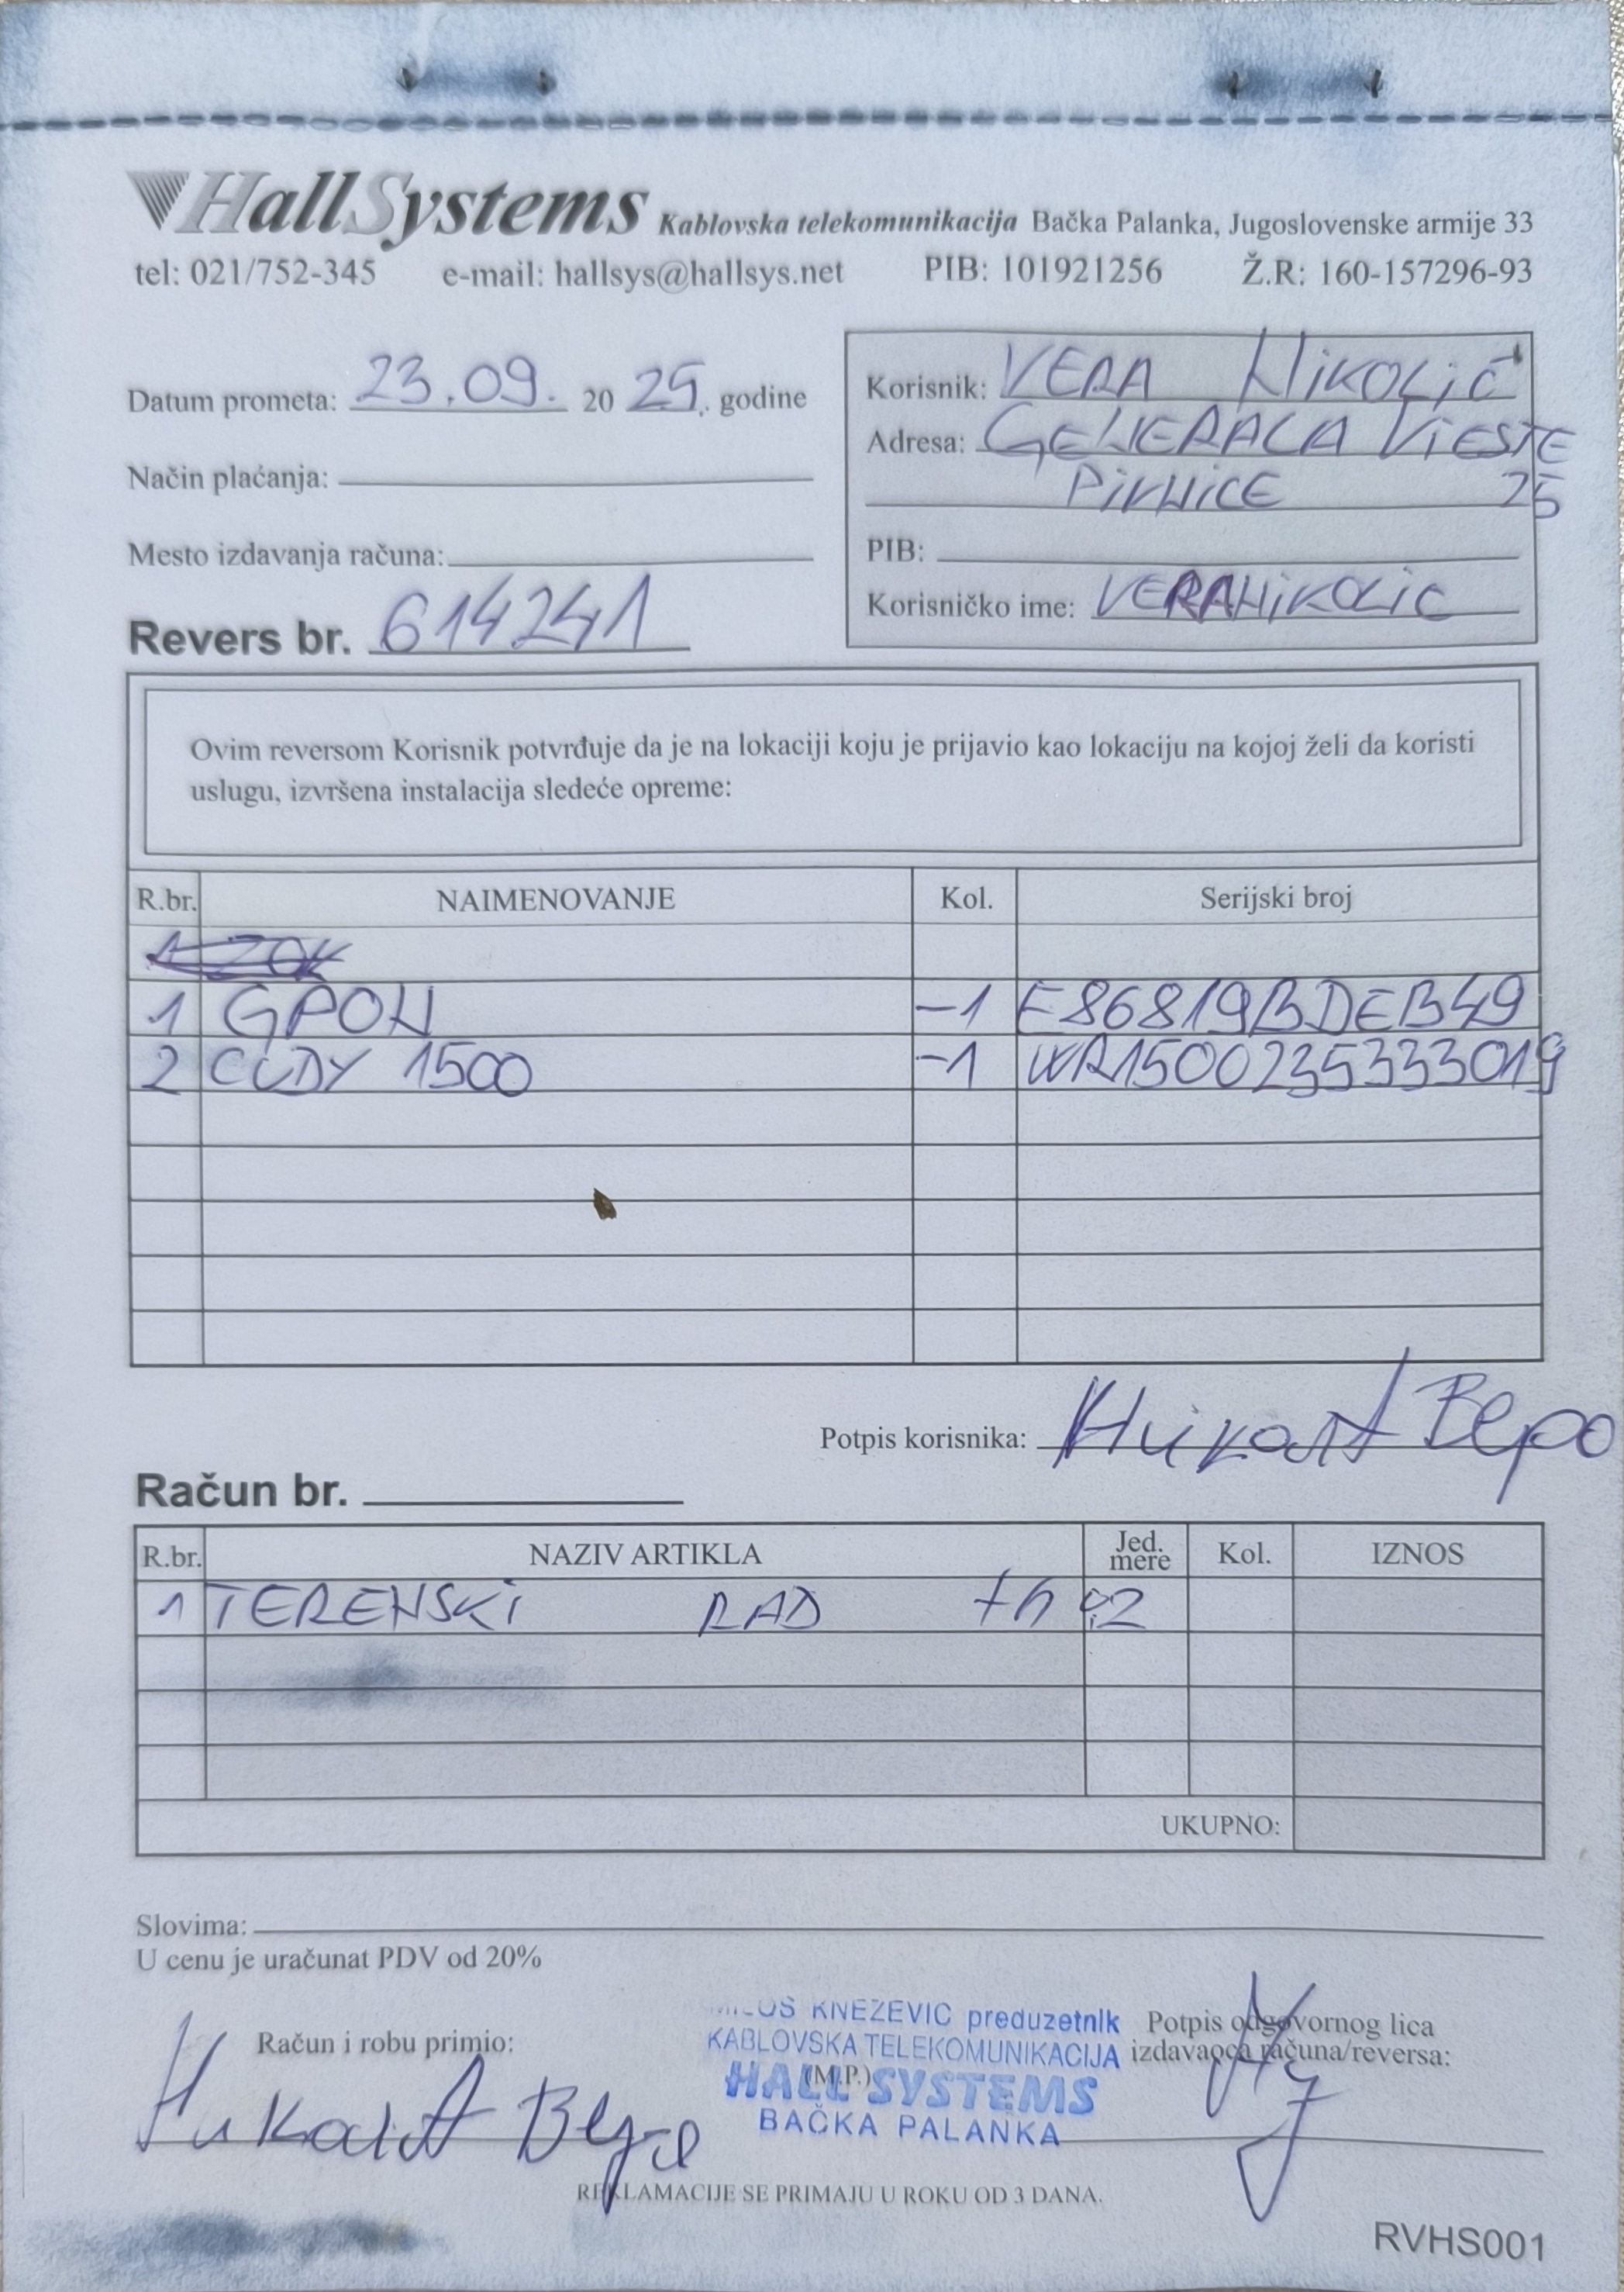 HallSystems Kablovska telekomunikacija Bačka Palanka, Jugoslovenske armije 33
tel: 021/752-345 e-mail: hallsys@hallsys.net PIB: 101921256 Ž.R: 160-157296-93
Datum prometa: 23.09. 2025. godine
Način plaćanja:
Mesto izdavanja računa:
Revers br. 614241
Korisnik: VERA NIKOLIĆ
Adresa: GENERALA VIESTE
PIVNICE 25
PIB:
Korisničko ime: VERANIKOLIC
Ovim reversom Korisnik potvrđuje da je na lokaciji koju je prijavio kao lokaciju na kojoj želi da koristi
uslugu, izvršena instalacija sledeće opreme:
R.br. NAIMENOVANJE Kol. Serijski broj
1 GPON -1 E86819BDEB49
2 CUDY 1500 -1 WR1500235333019
Potpis korisnika: Николић Вера
Račun br.
R.br. NAZIV ARTIKLA Jed. mere Kol. IZNOS
1 TERENSKI RAD
UKUPNO:
Slovima:
U cenu je uračunat PDV od 20%
Račun i robu primio:
Николић Вера
MILOŠ KNEŽEVIĆ preduzetnik
KABLOVSKA TELEKOMUNIKACIJA
(M.P.)
HALL SYSTEMS
BAČKA PALANKA
Potpis odgovornog lica
izdavaoca računa/reversa:
REKLAMACIJE SE PRIMAJU U ROKU OD 3 DANA.
RVHS001